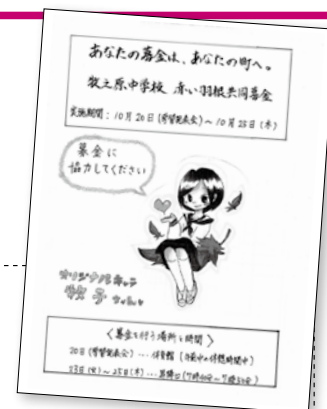 あなたの募金は、あなたの町へ。
牧之原中学校 赤い羽根共同募金
実施期間：10月20日(学習発表会)～10月25日(木)
募金に
協力してください
オリジナルキャラ
牧子ちゃん
〈募金を行う場所と時間〉
20日(学習発表会)…体育館(午前中の休憩時間中)
23日(火)～25日(木)…昇降口(7時40分～7時55分)